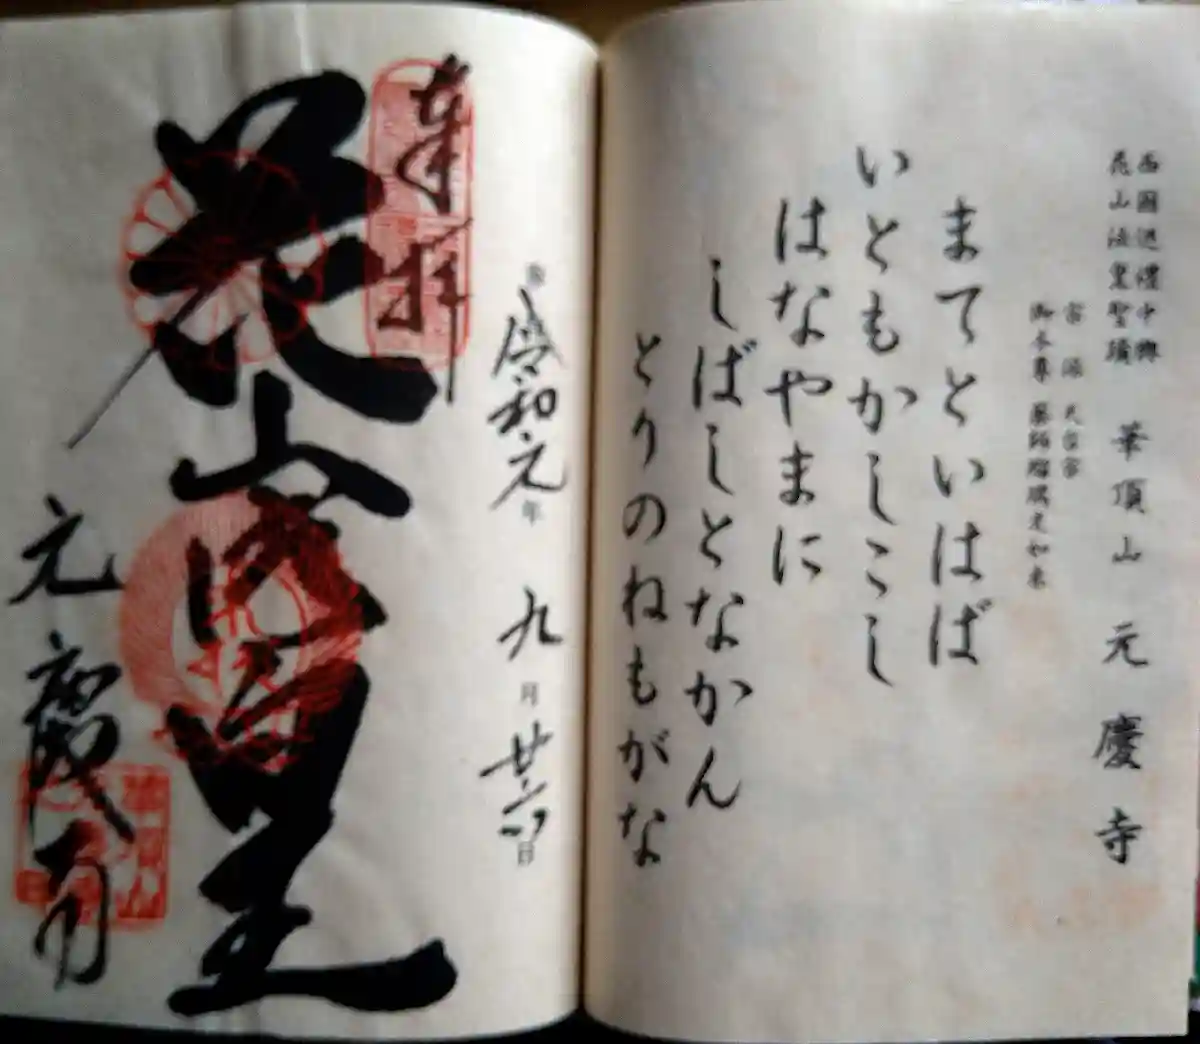 西國巡禮中興
花山法皇聖蹟
華頂山 元慶寺
宗派 天台宗
御本尊 薬師瑠璃光如来
まてといはば
いともかしこし
はなやまに
しばしとなかん
とりのねもがな
奉拝
令和元年 九月廿六日
花山法皇
元慶寺